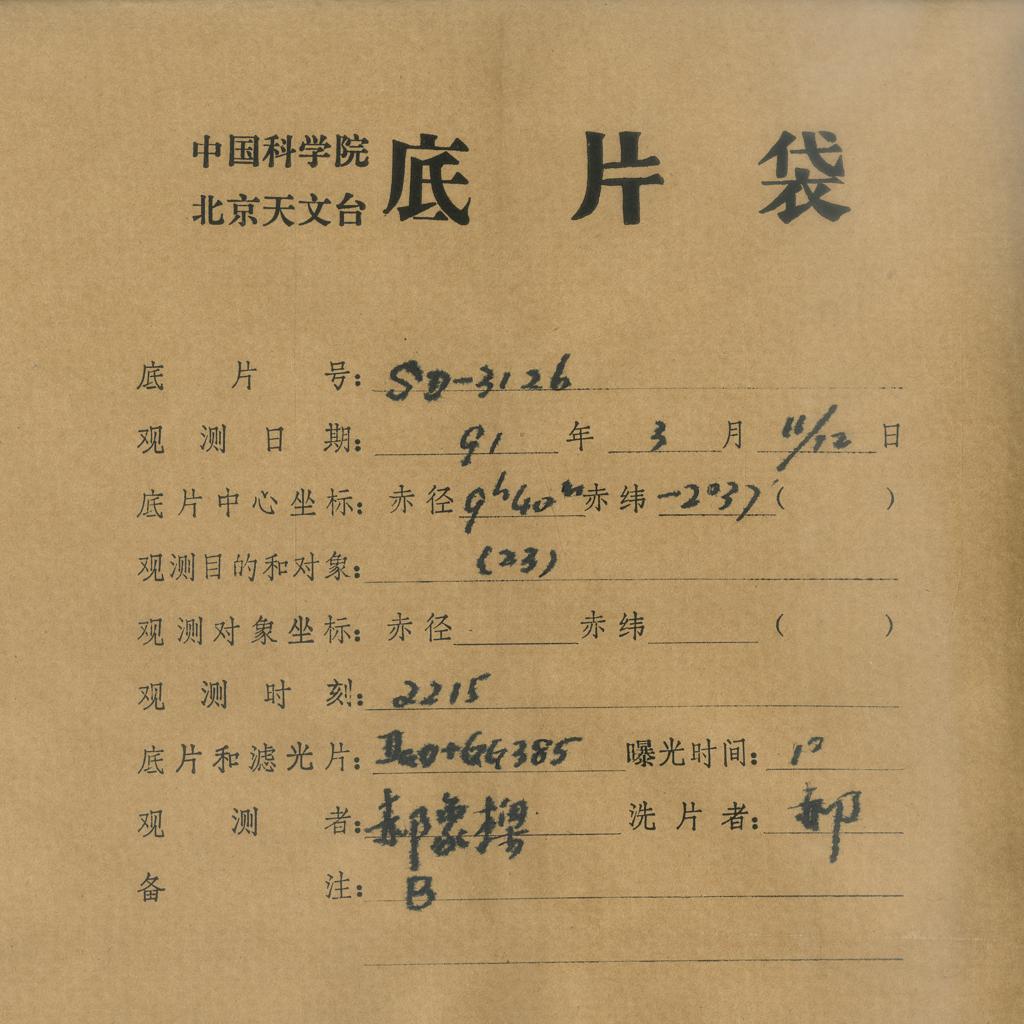 中国科学院
北京天文台
底片袋
底片号：SD-3126
观测日期：91年3月11/12日
底片中心坐标：赤径9h40m赤纬-2°37′（ ）
观测目的和对象：(23)
观测对象坐标：赤径 赤纬 （ ）
观测时刻：2215
底片和滤光片：IIaO+GG385 曝光时间：
观测者：郝象樑 洗片者：郝
备注：B